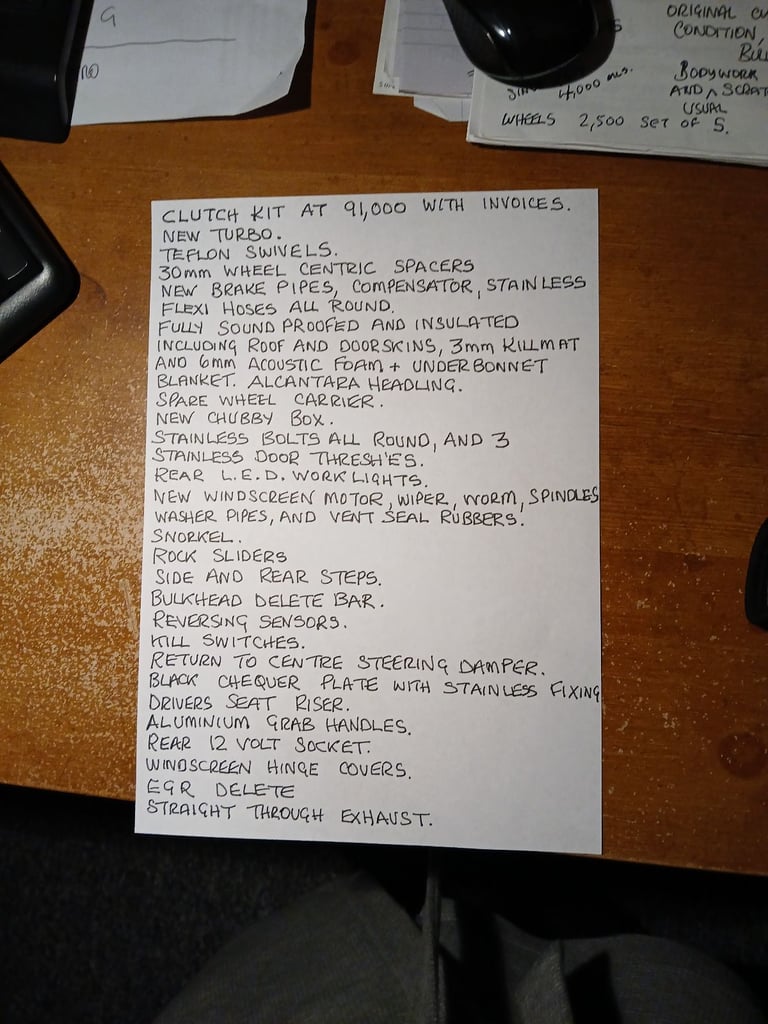 G
ORIGINAL
CONDITION,
BODYWORK
4,000 mls.
AND ^ SCRAT
USUAL
WHEELS 2,500 SET OF 5.
CLUTCH KIT AT 91,000 WITH INVOICES.
NEW TURBO.
TEFLON SWIVELS.
30mm WHEEL CENTRIC SPACERS
NEW BRAKE PIPES, COMPENSATOR, STAINLESS
FLEXI HOSES ALL ROUND.
FULLY SOUND PROOFED AND INSULATED
INCLUDING ROOF AND DOORSKINS, 3mm KILLMAT
AND 6mm ACOUSTIC FOAM + UNDERBONNET
BLANKET. ALCANTARA HEADLING.
SPARE WHEEL CARRIER.
NEW CHUBBY BOX.
STAINLESS BOLTS ALL ROUND, AND 3
STAINLESS DOOR THRESH'ES.
REAR L.E.D. WORK LIGHTS.
NEW WINDSCREEN MOTOR, WIPER, WORM, SPINDLES
WASHER PIPES, AND VENT SEAL RUBBERS.
SNORKEL.
ROCK SLIDERS
SIDE AND REAR STEPS.
BULKHEAD DELETE BAR.
REVERSING SENSORS.
KILL SWITCHES.
RETURN TO CENTRE STEERING DAMPER.
BLACK CHEQUER PLATE WITH STAINLESS FIXING
DRIVERS SEAT RISER.
ALUMINIUM GRAB HANDLES.
REAR 12 VOLT SOCKET.
WINDSCREEN HINGE COVERS.
EGR DELETE
STRAIGHT THROUGH EXHAUST.